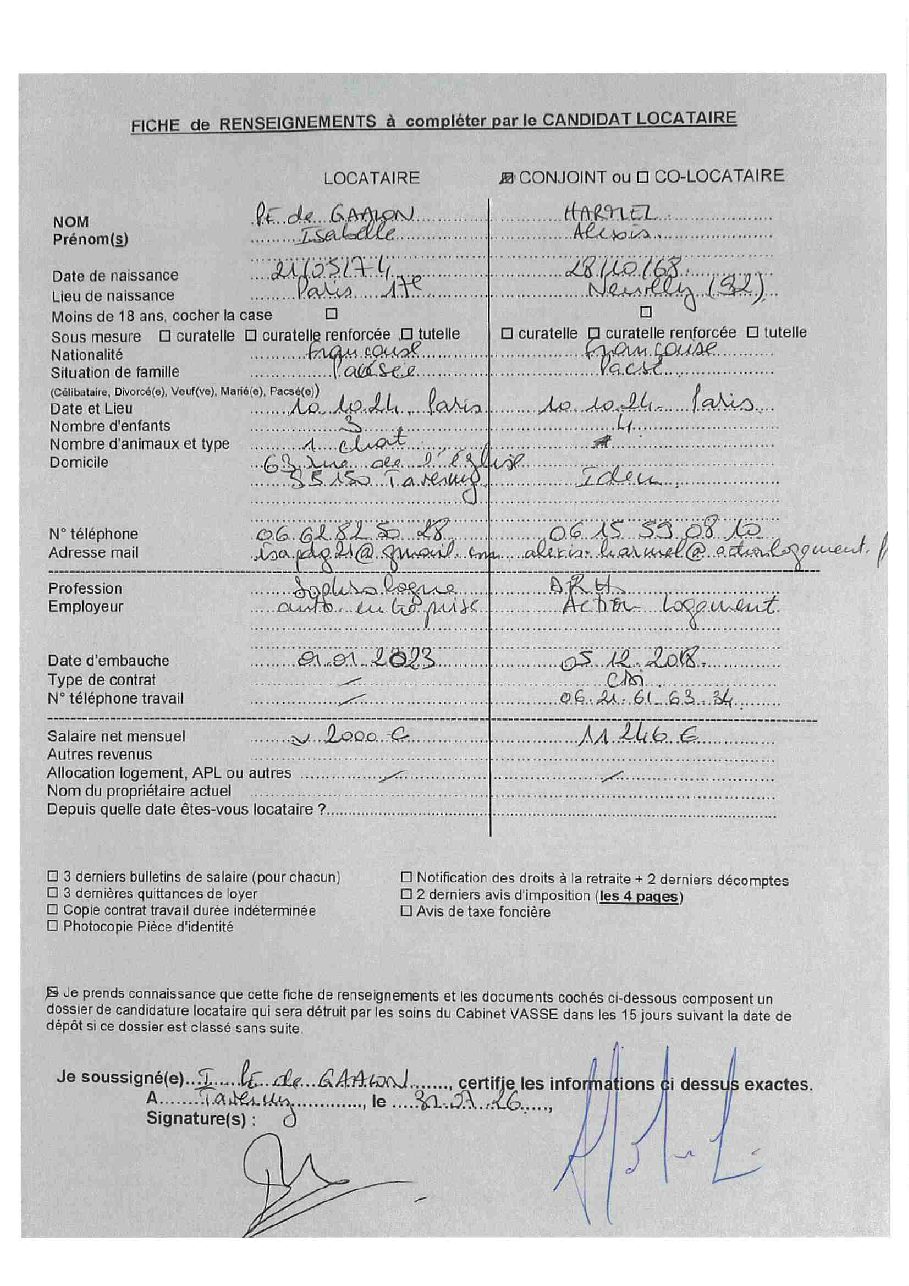 FICHE de RENSEIGNEMENTS à compléter par le CANDIDAT LOCATAIRE
LOCATAIRE CONJOINT ou ☐ CO-LOCATAIRE
NOM de GAALON HARMEL
Prénom(s) Isabelle Alexis
Date de naissance 21/05/74 28/10/68
Lieu de naissance Paris 17e Neuilly (92)
Moins de 18 ans, cocher la case ☐ ☐
Sous mesure ☐ curatelle ☐ curatelle renforcée ☐ tutelle ☐ curatelle ☐ curatelle renforcée ☐ tutelle
Nationalité Française Française
Situation de famille Pacsée Pacsé
(Célibataire, Divorcé(e), Veuf(ve), Marié(e), Pacsé(e))
Date et Lieu 10.10.24. Paris 10.10.24. Paris
Nombre d'enfants 3 4
Nombre d'animaux et type 1 chat
Domicile 63 rue de l'église
95150 Taverny Idem
N° téléphone 06 62 82 50 28 06 15 59 08 10
Adresse mail isapdg21@gmail.com alexis.harmel@actionlogement.f
Profession Sophrologue DRH
Employeur auto entreprise Action Logement
Date d'embauche 01.01.2023 05.12.2018
Type de contrat / CDI
N° téléphone travail / 06.21.61.63.34
Salaire net mensuel ~ 2000 € 11 246 €
Autres revenus
Allocation logement, APL ou autres / /
Nom du propriétaire actuel
Depuis quelle date êtes-vous locataire ?
☐ 3 derniers bulletins de salaire (pour chacun) ☐ Notification des droits à la retraite + 2 derniers décomptes
☐ 3 dernières quittances de loyer ☐ 2 derniers avis d'imposition (les 4 pages)
☐ Copie contrat travail durée indéterminée ☐ Avis de taxe foncière
☐ Photocopie Pièce d'identité
Je prends connaissance que cette fiche de renseignements et les documents cochés ci-dessous composent un
dossier de candidature locataire qui sera détruit par les soins du Cabinet VASSE dans les 15 jours suivant la date de
dépôt si ce dossier est classé sans suite.
Je soussigné(e) I. de GAALON, certifie les informations ci dessus exactes.
A Taverny, le 31.01.26,
Signature(s) :